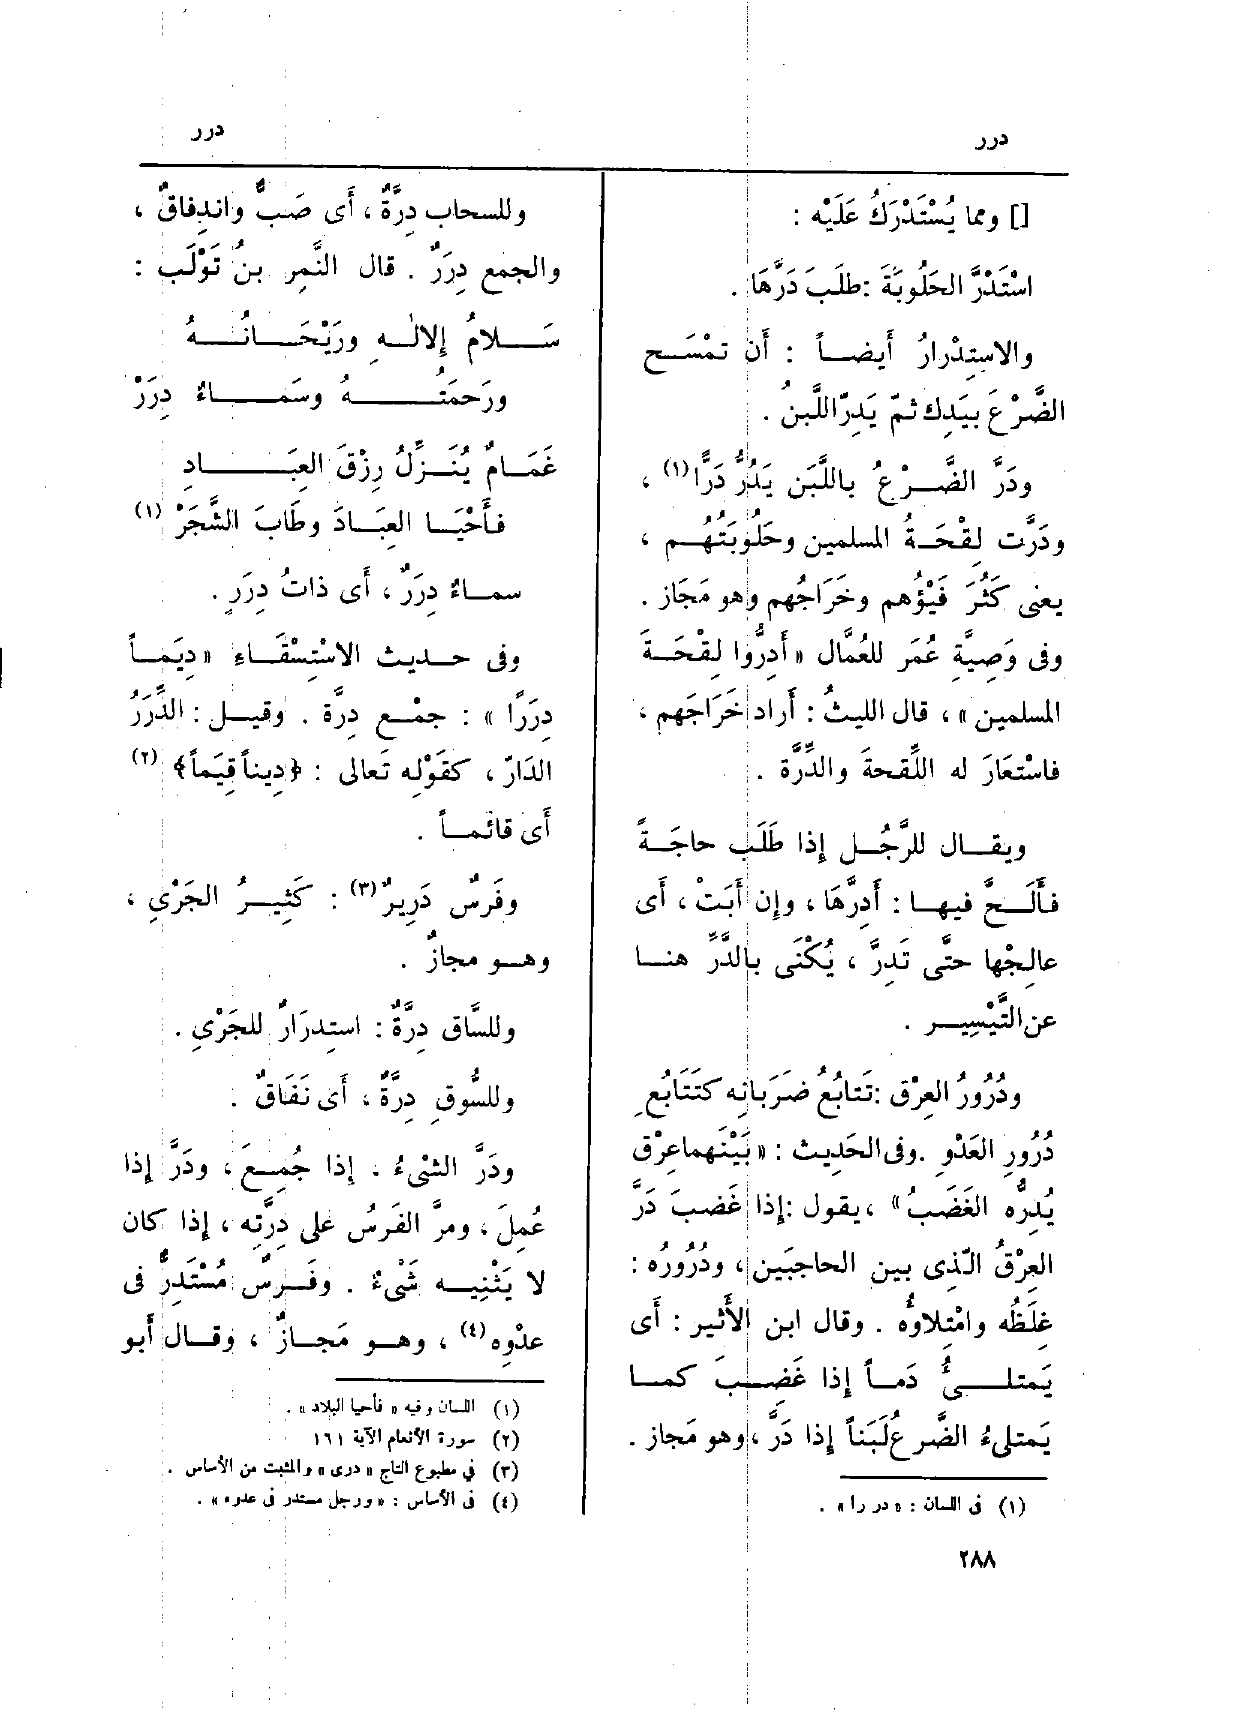 درر
درر
[] ومما يُسْتَدْرَكُ عَلَيْه :
اسْتَدَرَّ الحَلُوبَةَ : طلَبَ دَرَّهَا .
والاستِدْرارُ أَيضاً : أَن تمْسَح
الضَّرْعَ بيَدِك ثمّ يَدِرّ اللّبنُ .
ودَرَّ الضَّرْعُ باللَّبَن يَدُرُّ دَرًّا (١) ،
ودَرَّت لِقْحَةُ المسلمين وحَلُوبَتُهُم ،
يعنى كَثُرَ فَيْؤُهم وخَرَاجُهم وهو مَجَاز .
وفى وَصِيَّةِ عُمَر للعُمَّال «أَدِرُّوا لِقْحَةَ
المسلمين» ، قال الليثُ : أَراد خَرَاجَهم ،
فاسْتعَارَ له اللِّقحةَ والدِّرَّة .
ويقال للرَّجُل إذا طَلَب حاجَةً
فأَلَحَّ فيها : أَدِرَّهَا ، وإن أَبَتْ ، أَى
عالِجْها حتَّى تَدِرَّ ، يُكْنَى بالدَّرِّ هنا
عن التَّيْسِير .
ودُرُورُ العِرْق : تَتابُعُ ضرَبَانِه كتَتَابُعِ
دُرُورِ العَدْوِ . وفى الحَدِيث : «بَيْنَهما عِرْق
يُدِرُّه الغَضَبُ» ، يقول : إذا غَضِبَ دَرَّ
العِرْقُ الَّذى بين الحاجبَين ، ودُرُورُه :
غِلَظُه وامْتِلاؤُه . وقال ابن الأَثير : أَى
يَمتلىُّ دَماً إذا غَضِبَ كما
يَمتلىءُ الضَّرعُ لَبَناً إذا دَرَّ ، وهو مَجاز .
(١) فى اللسان : «در را» .
وللسحاب دِرَّةٌ ، أَى صَبٌّ واندِفاقٌ ،
والجمع دِرَرٌ . قال النَّمِر بنُ تَوْلَب :
سَلامُ الإِلٰهِ ورَيْحَانُهُ
ورَحمَتُهُ وسَماءٌ دِرَرْ
غَمَامٌ يُنَزِّلُ رِزْقَ العِبَادِ
فأَحْيَا العِبَادَ وطَابَ الشَّجَرْ (١)
سماءٌ دِرَرٌ ، أَى ذاتُ دِرَرٍ .
وفى حديث الاسْتِسْقَاءِ «دِيَماً
دِرَرًا» : جمْع دِرَّة . وقيل : الدِّرَرُ
الدَارّ ، كقَوْلِه تَعالى : ﴿دِيناً قِيَماً﴾ (٢)
أَى قائماً .
وفَرَسٌ دَرِيرٌ (٣) : كَثِيرُ الجَرْىِ ،
وهو مجازٌ .
وللسَّاق دِرَّةٌ : استِدرَارٌ للجَرْىِ .
وللسُّوقِ دِرَّةٌ ، أَى نَفَاقٌ .
ودَرَّ الشىْءُ . إذا جُمِعَ ، ودَرَّ إذا
عُمِلَ ، ومرَّ الفَرَسُ على دِرَّتِه ، إذا كان
لا يَثْنِيه شَىْءٌ . وفَرَسٌ مُسْتَدِرٌّ فى
عدْوِه (٤) ، وهو مَجازٌ ، وقال أَبو
(١) اللسان وفيه «فأحيا البلاد» .
(٢) سورة الأنعام الآية ١٦١
(٣) في مطبوع التاج «درى» والمثبت من الأساس .
(٤) فى الأساس : «ورجل مستدر فى عدوه» .
٢٨٨